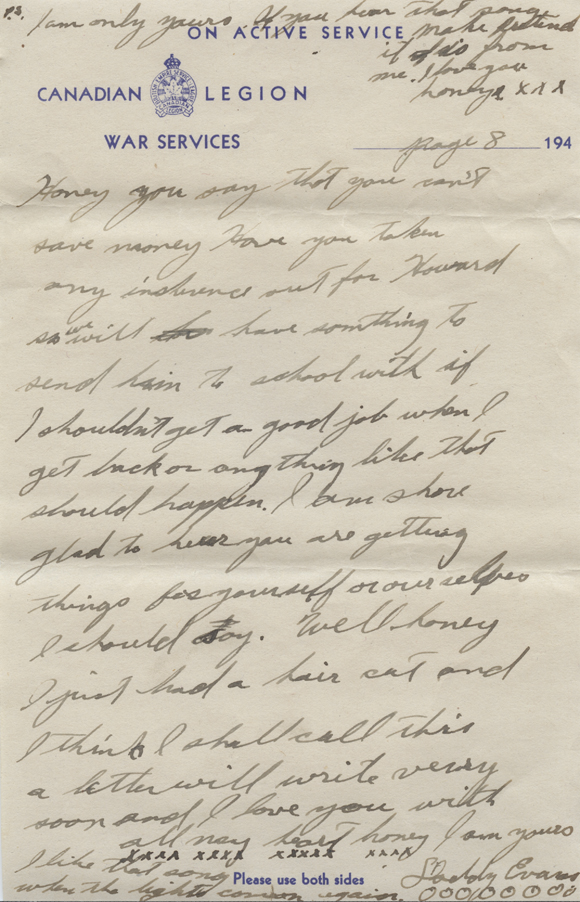 P.S. I am only yours. If you hear that song
make pretend
it is from
me. I love you
honey x x x
ON ACTIVE SERVICE
CANADIAN LEGION
WAR SERVICES
page 8 194
Honey you say that you can't
save money Have you taken
any insurence out for Howard
so we will have somthing to
send him to school with if
I shouldn't get a good job when I
get back or anything like that
should happen. I am shore
glad to hear you are getting
things for yourself or ourselves
I should say. Well honey
I just had a hair cut and
I think I shall call this
a letter will write very
soon and I love you with
all my heart honey I am yours
xxxx xxxx xxxxx xxxx
I like that song Daddy Evans
when the lights come on again.
Please use both sides
OOOOOOOO